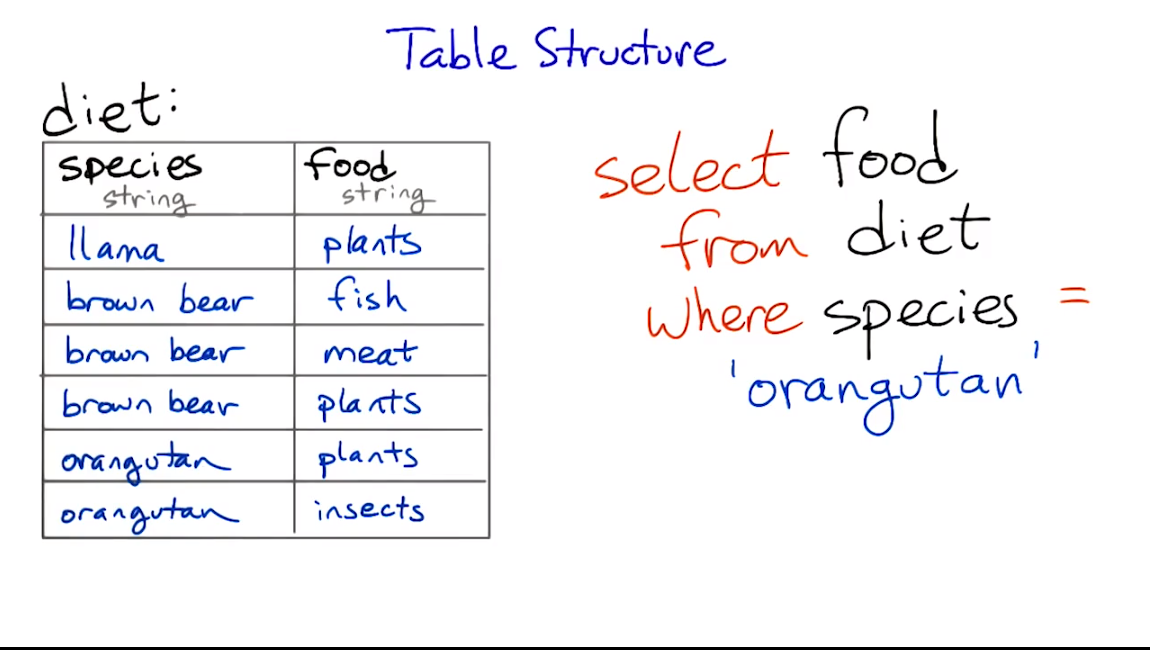 Table Structure
diet:
species food
string string
llama plants
brown bear fish
brown bear meat
brown bear plants
orangutan plants
orangutan insects
select food
from diet
where species =
'orangutan'